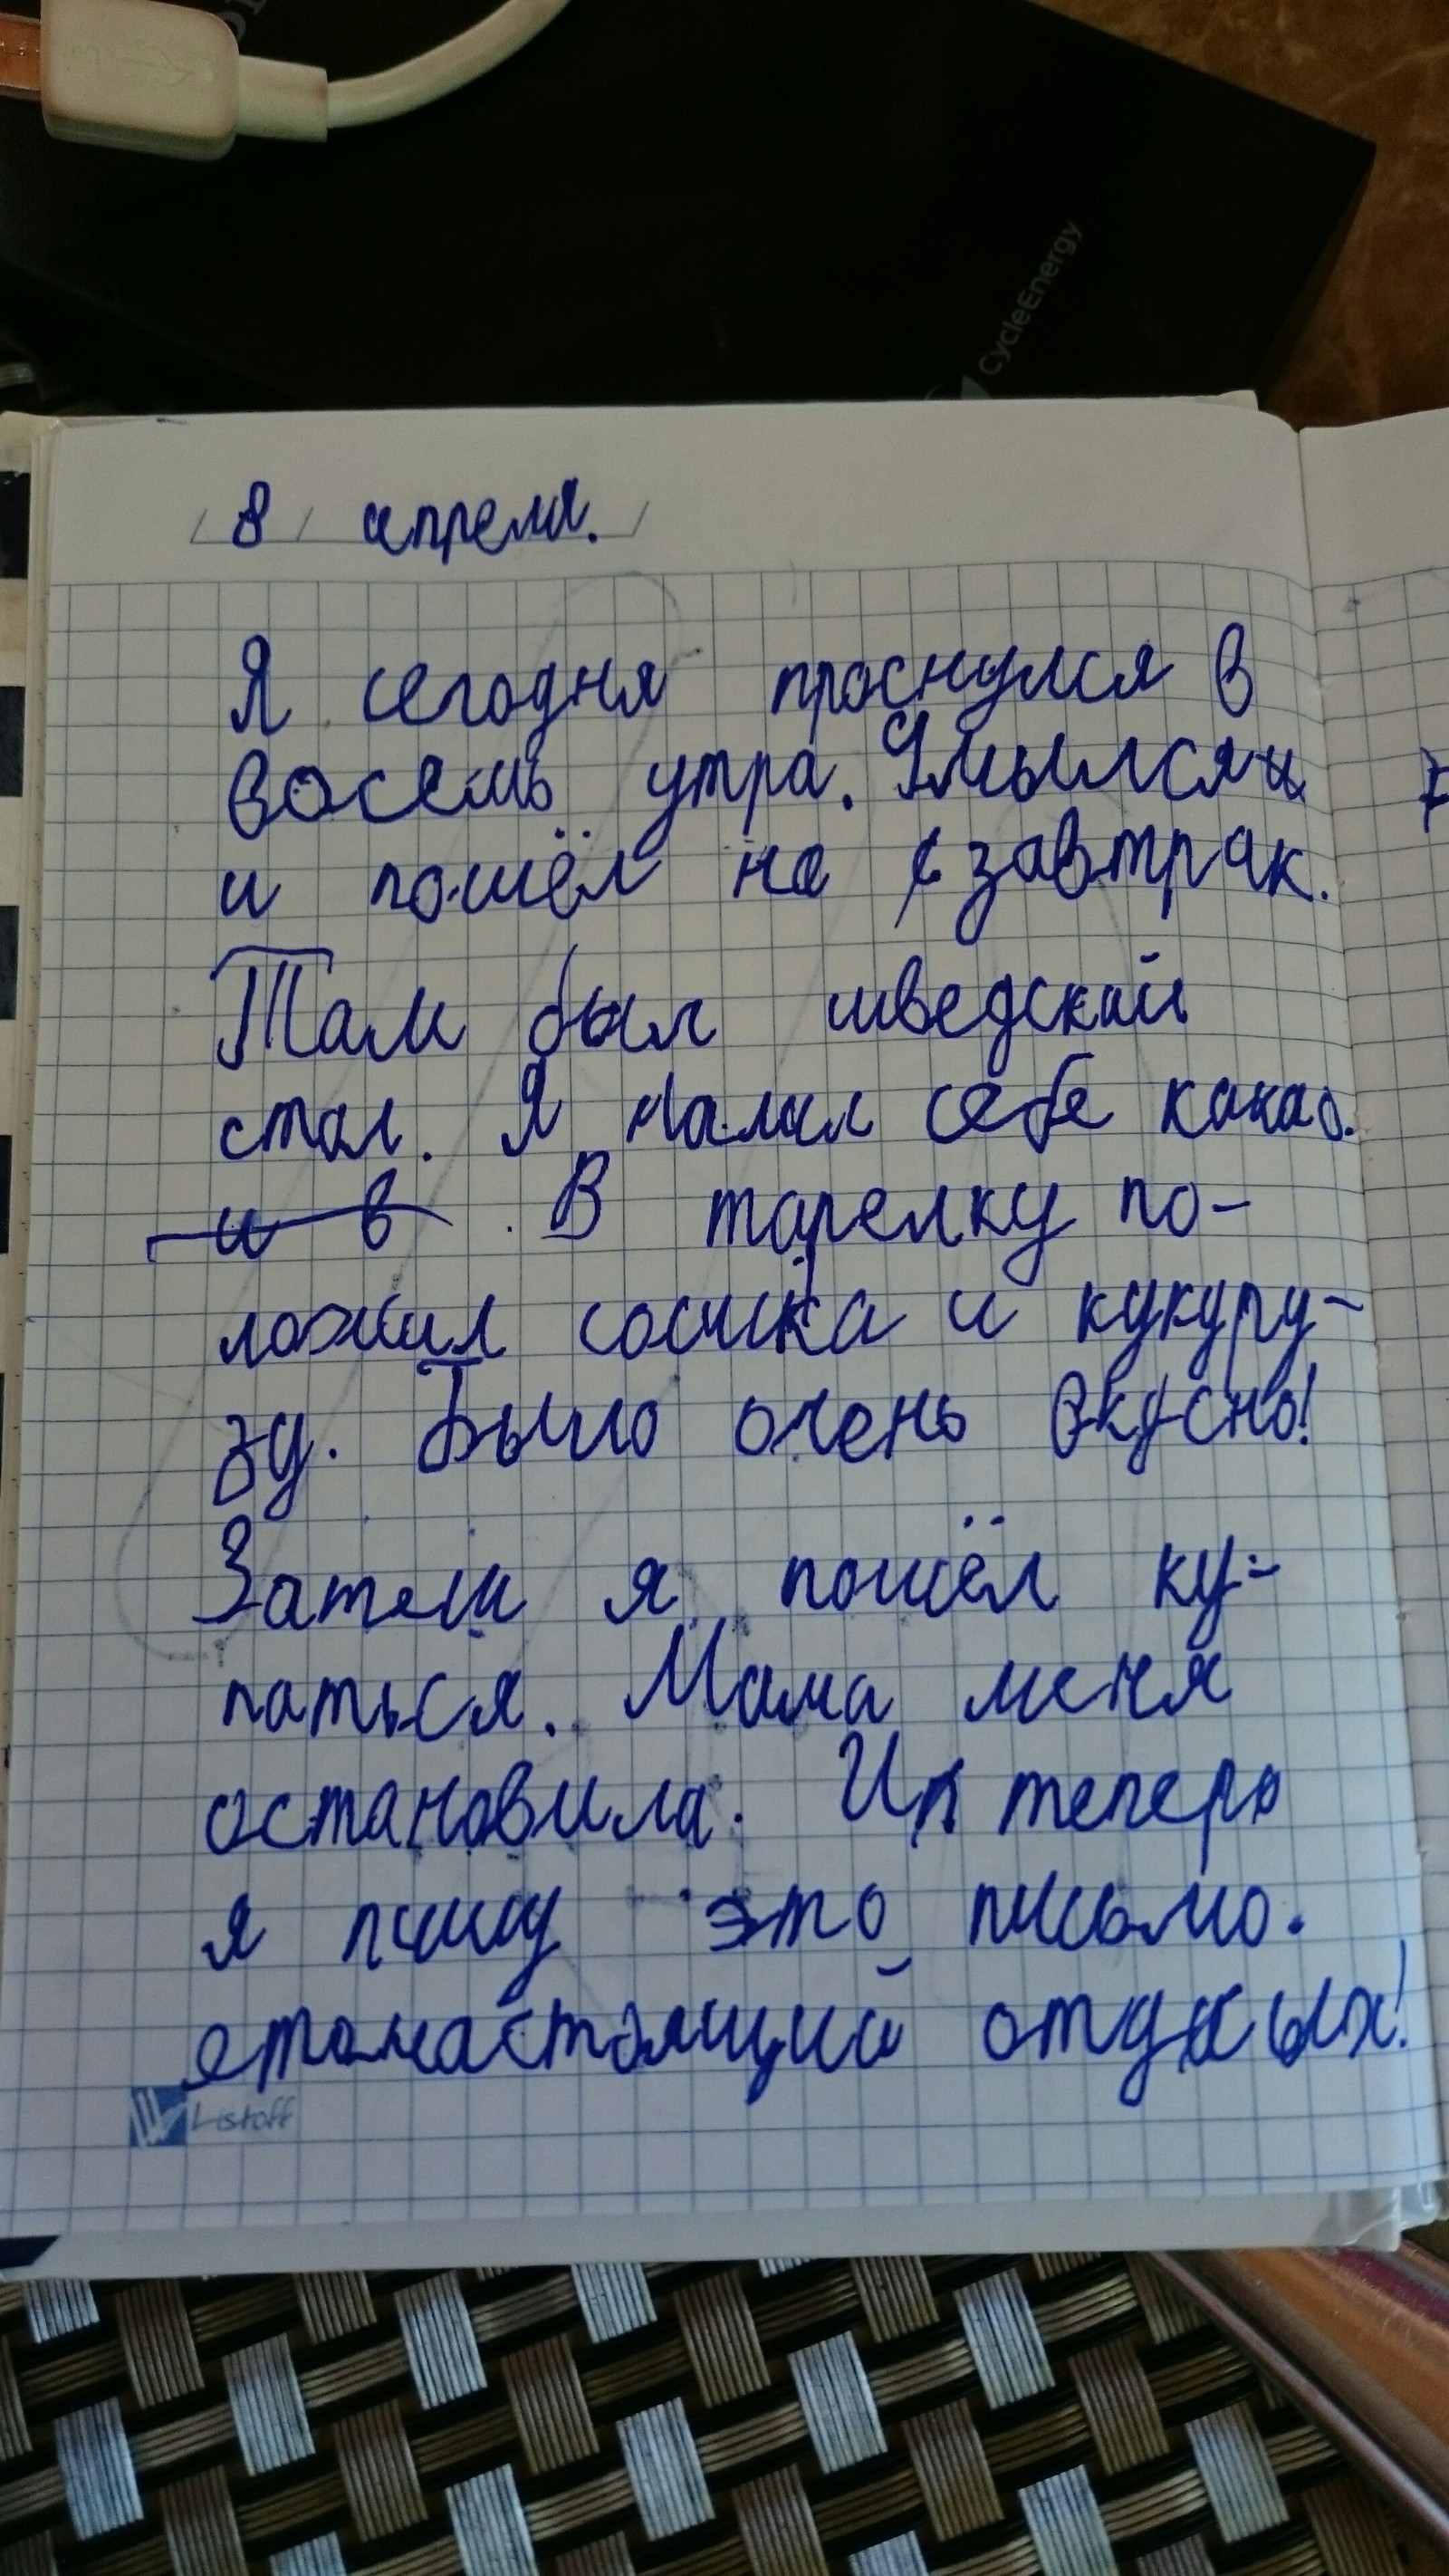 CycleEnergy
8 апреля.
Я сегодня проснулся в
восемь утра. Умылся и
и пошёл на завтрак.
Там был шведский
стол. Я налил себе какао.
и в . В тарелку по-
ложил сосиска и кукуру-
зу. Было очень вкусно!
Затем я пошёл ку-
паться. Мама меня
остановила. И теперь
я пишу это письмо.
етонастоящий отдых!
Listoff